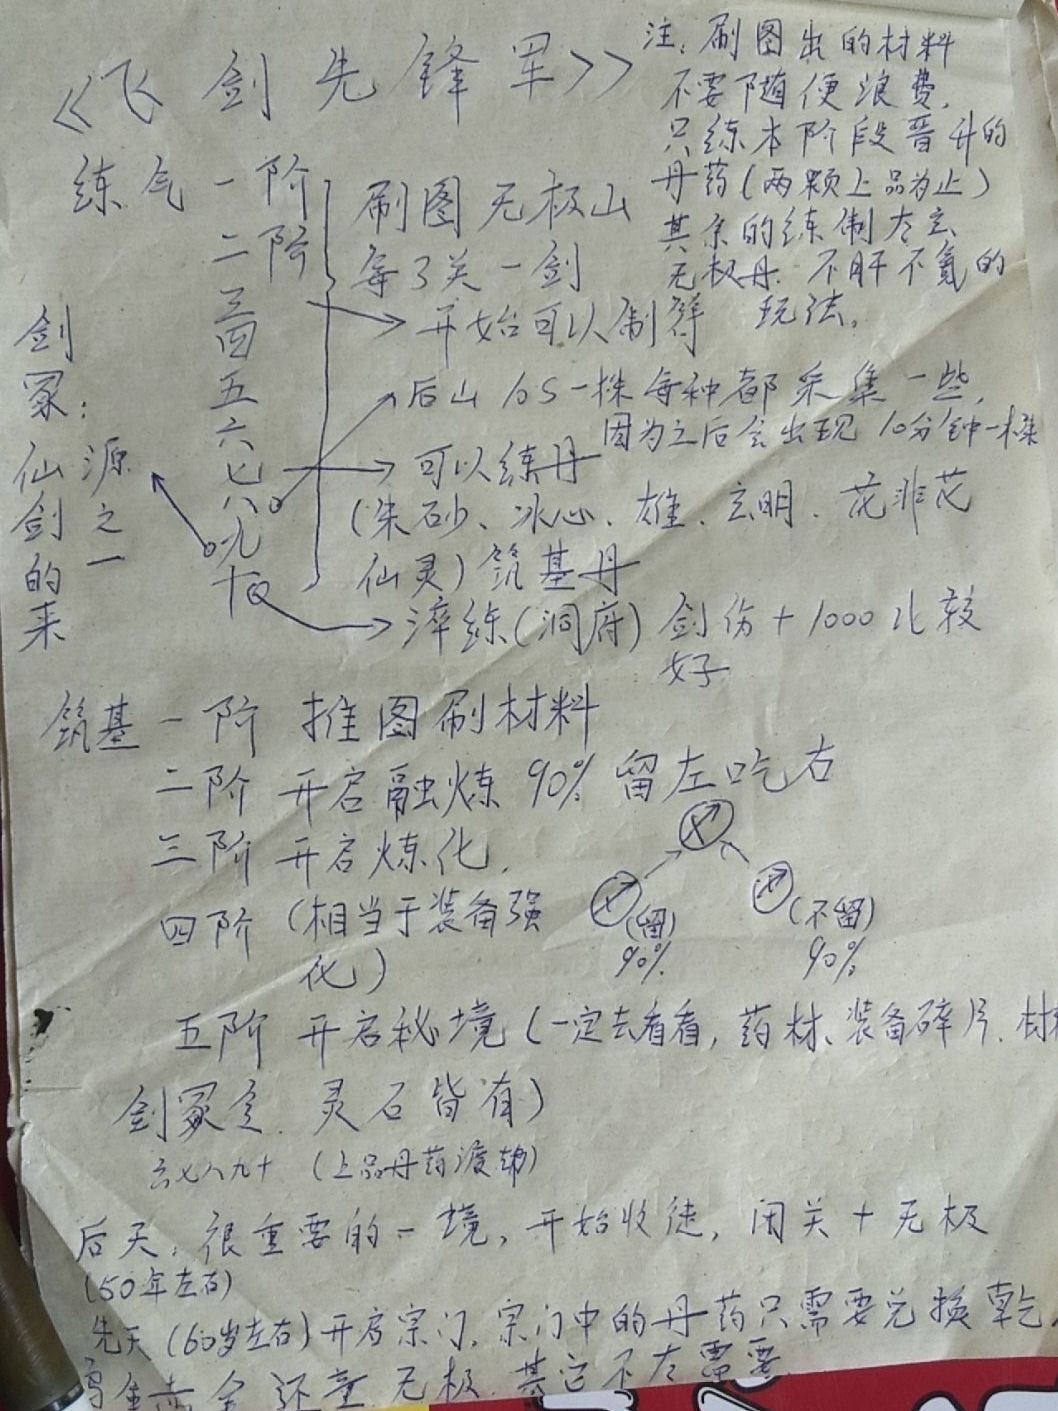 《飞剑先锋军》
注：刷图出的材料
不要随便浪费，
只练本阶段晋升的
丹药（两颗上品为止）
其余的练制太玄
无极丹.不肝不氪的
玩法。
练气一阶
二阶
三
四
五
六
七
八
九
十
刷图无极山
每了关一剑
开始可以制符
后山 10S一株每种都采集一些，
因为之后会出现10分钟一株
可以练丹
（朱砂、冰心、雄、玄明、花非花
仙灵）筑基丹
淬练（洞府）剑伤+1000比较
好
剑冢：
仙剑的来
源之一
筑基一阶 推图刷材料
二阶 开启融炼 90% 留左吃右
三阶 开启炼化.
四阶（相当于装备强
化）
（留）
90%
（不留）
90%
五阶 开启秘境（一定去看看，药材、装备碎片、材
剑冢令.灵石皆有）
六七八九十（上品丹药渡劫）
后天：很重要的一境，开始收徒，闭关+无极
（50年左右）
先天（60岁左右）开启宗门.宗门中的丹药只需要兑换乾
赤金 还童 无极.其它不太需要